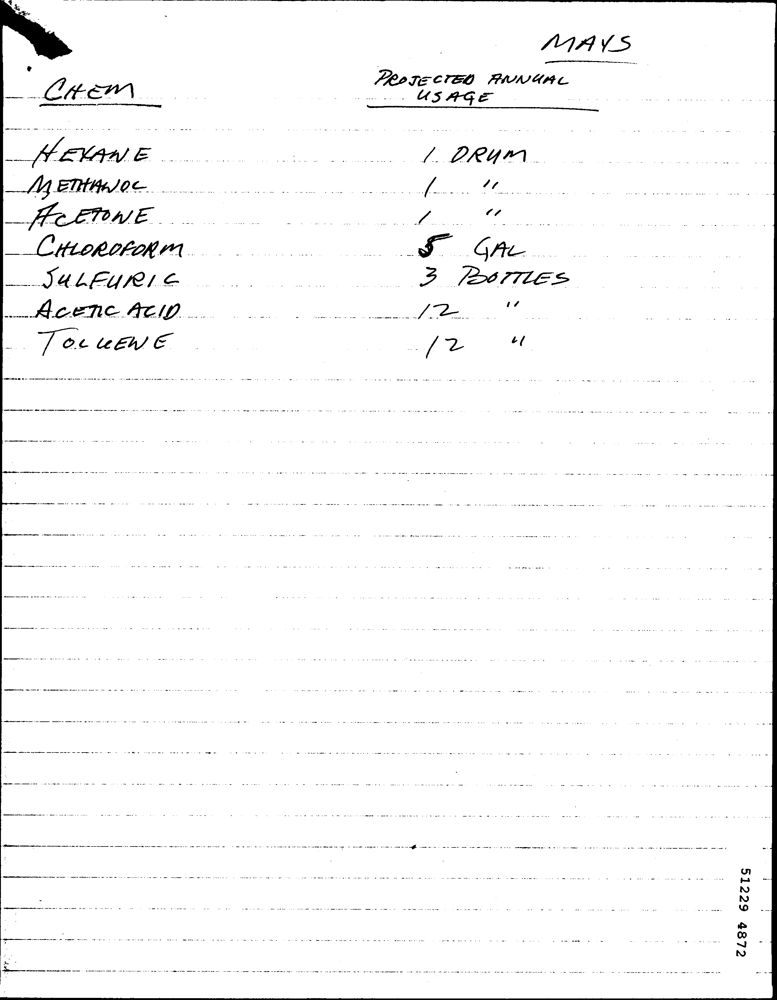 MAYS
CHEM
PROJECTED ANNUAL
USAGE
HEXANE 1 DRUM
METHANOL 1 "
ACETONE 1 "
CHLOROFORM 5 GAL
SULFURIC 3 BOTTLES
ACETIC ACID 12 "
TOLUENE 12 "
51229 4872